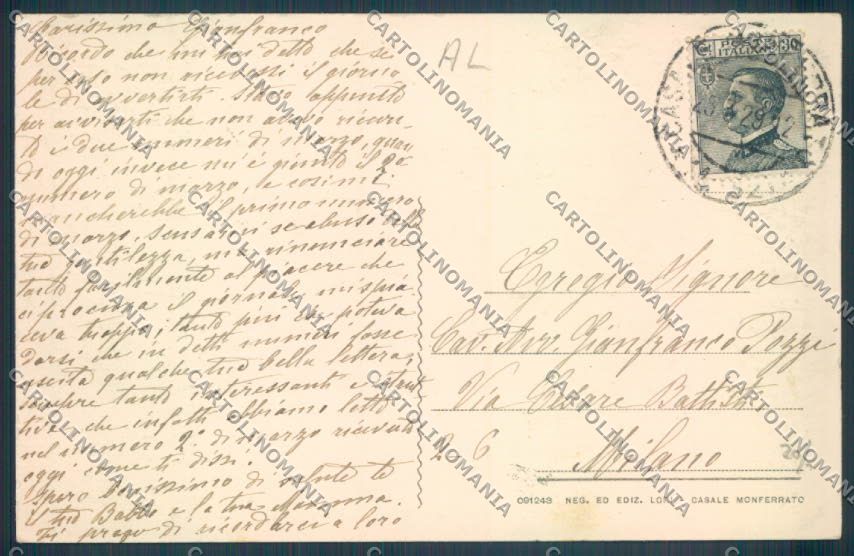 Carissimo Gianfranco
Ricordo che mi hai detto che se
per caso non ricevessi il giorna
le di avvertirti. Stavo appunto
per avvisarti che non avevo ricevu
to i due numeri di marzo, quan
do oggi invece mi è giunto il 2º
numero di marzo, e così mi
mancherebbe il primo numero
di marzo. Scusami se abuso della
tua gentilezza, ma rinunciare
tanto facilmente al piacere che
ci procura il giornale mi spia
ceva troppo, tanto più che poteva
darsi che in detti numeri fosse
uscita qualche tua bella lettera,
sempre tanto interessanti e istrut
tive che infatti abbiamo letto
nel numero 2º di marzo ricevuto
oggi come ti dissi.
Spero benissimo di salute te
il tuo Babbo e la tua Mamma.
Ti prego di ricordarci a loro
AL
POSTE
ITALIANE
Egregio Signore
Cav. Avv. Gianfranco Pozzi
Via Cesare Battisti
26 Milano
091243 NEG. ED EDIZ. CASALE MONFERRATO
CARTOLINOMANIA